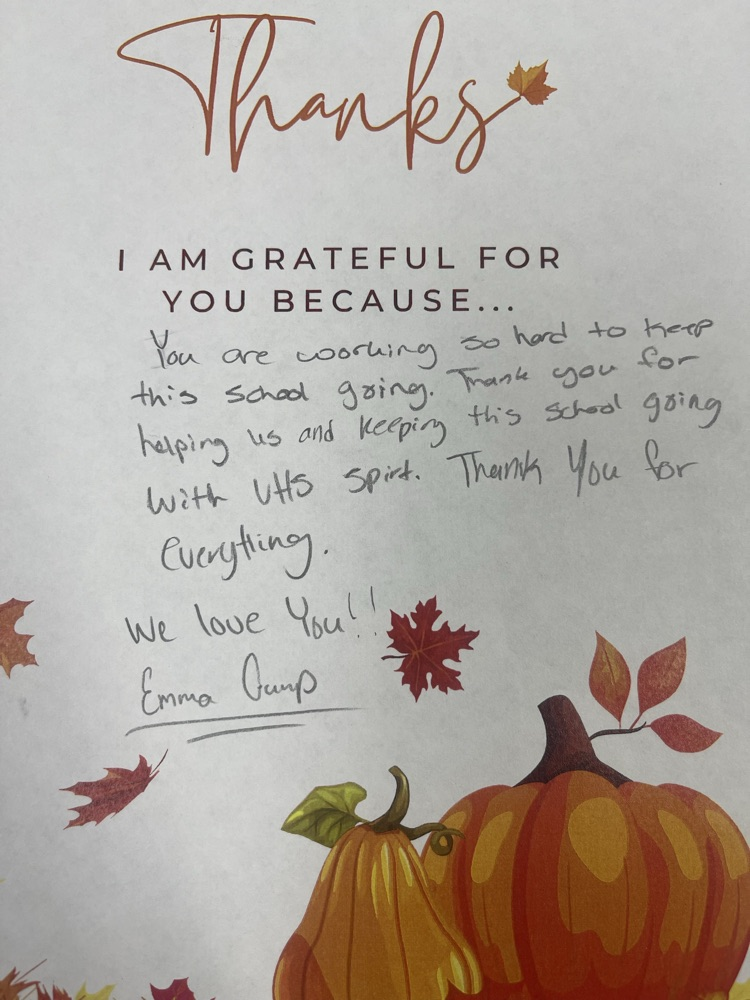 Thanks
I AM GRATEFUL FOR
YOU BECAUSE...
You are working so hard to keep
this school going. Thank you for
helping us and keeping this school going
with VHS spirt. Thank You for
everything.
We love You!!
Emma